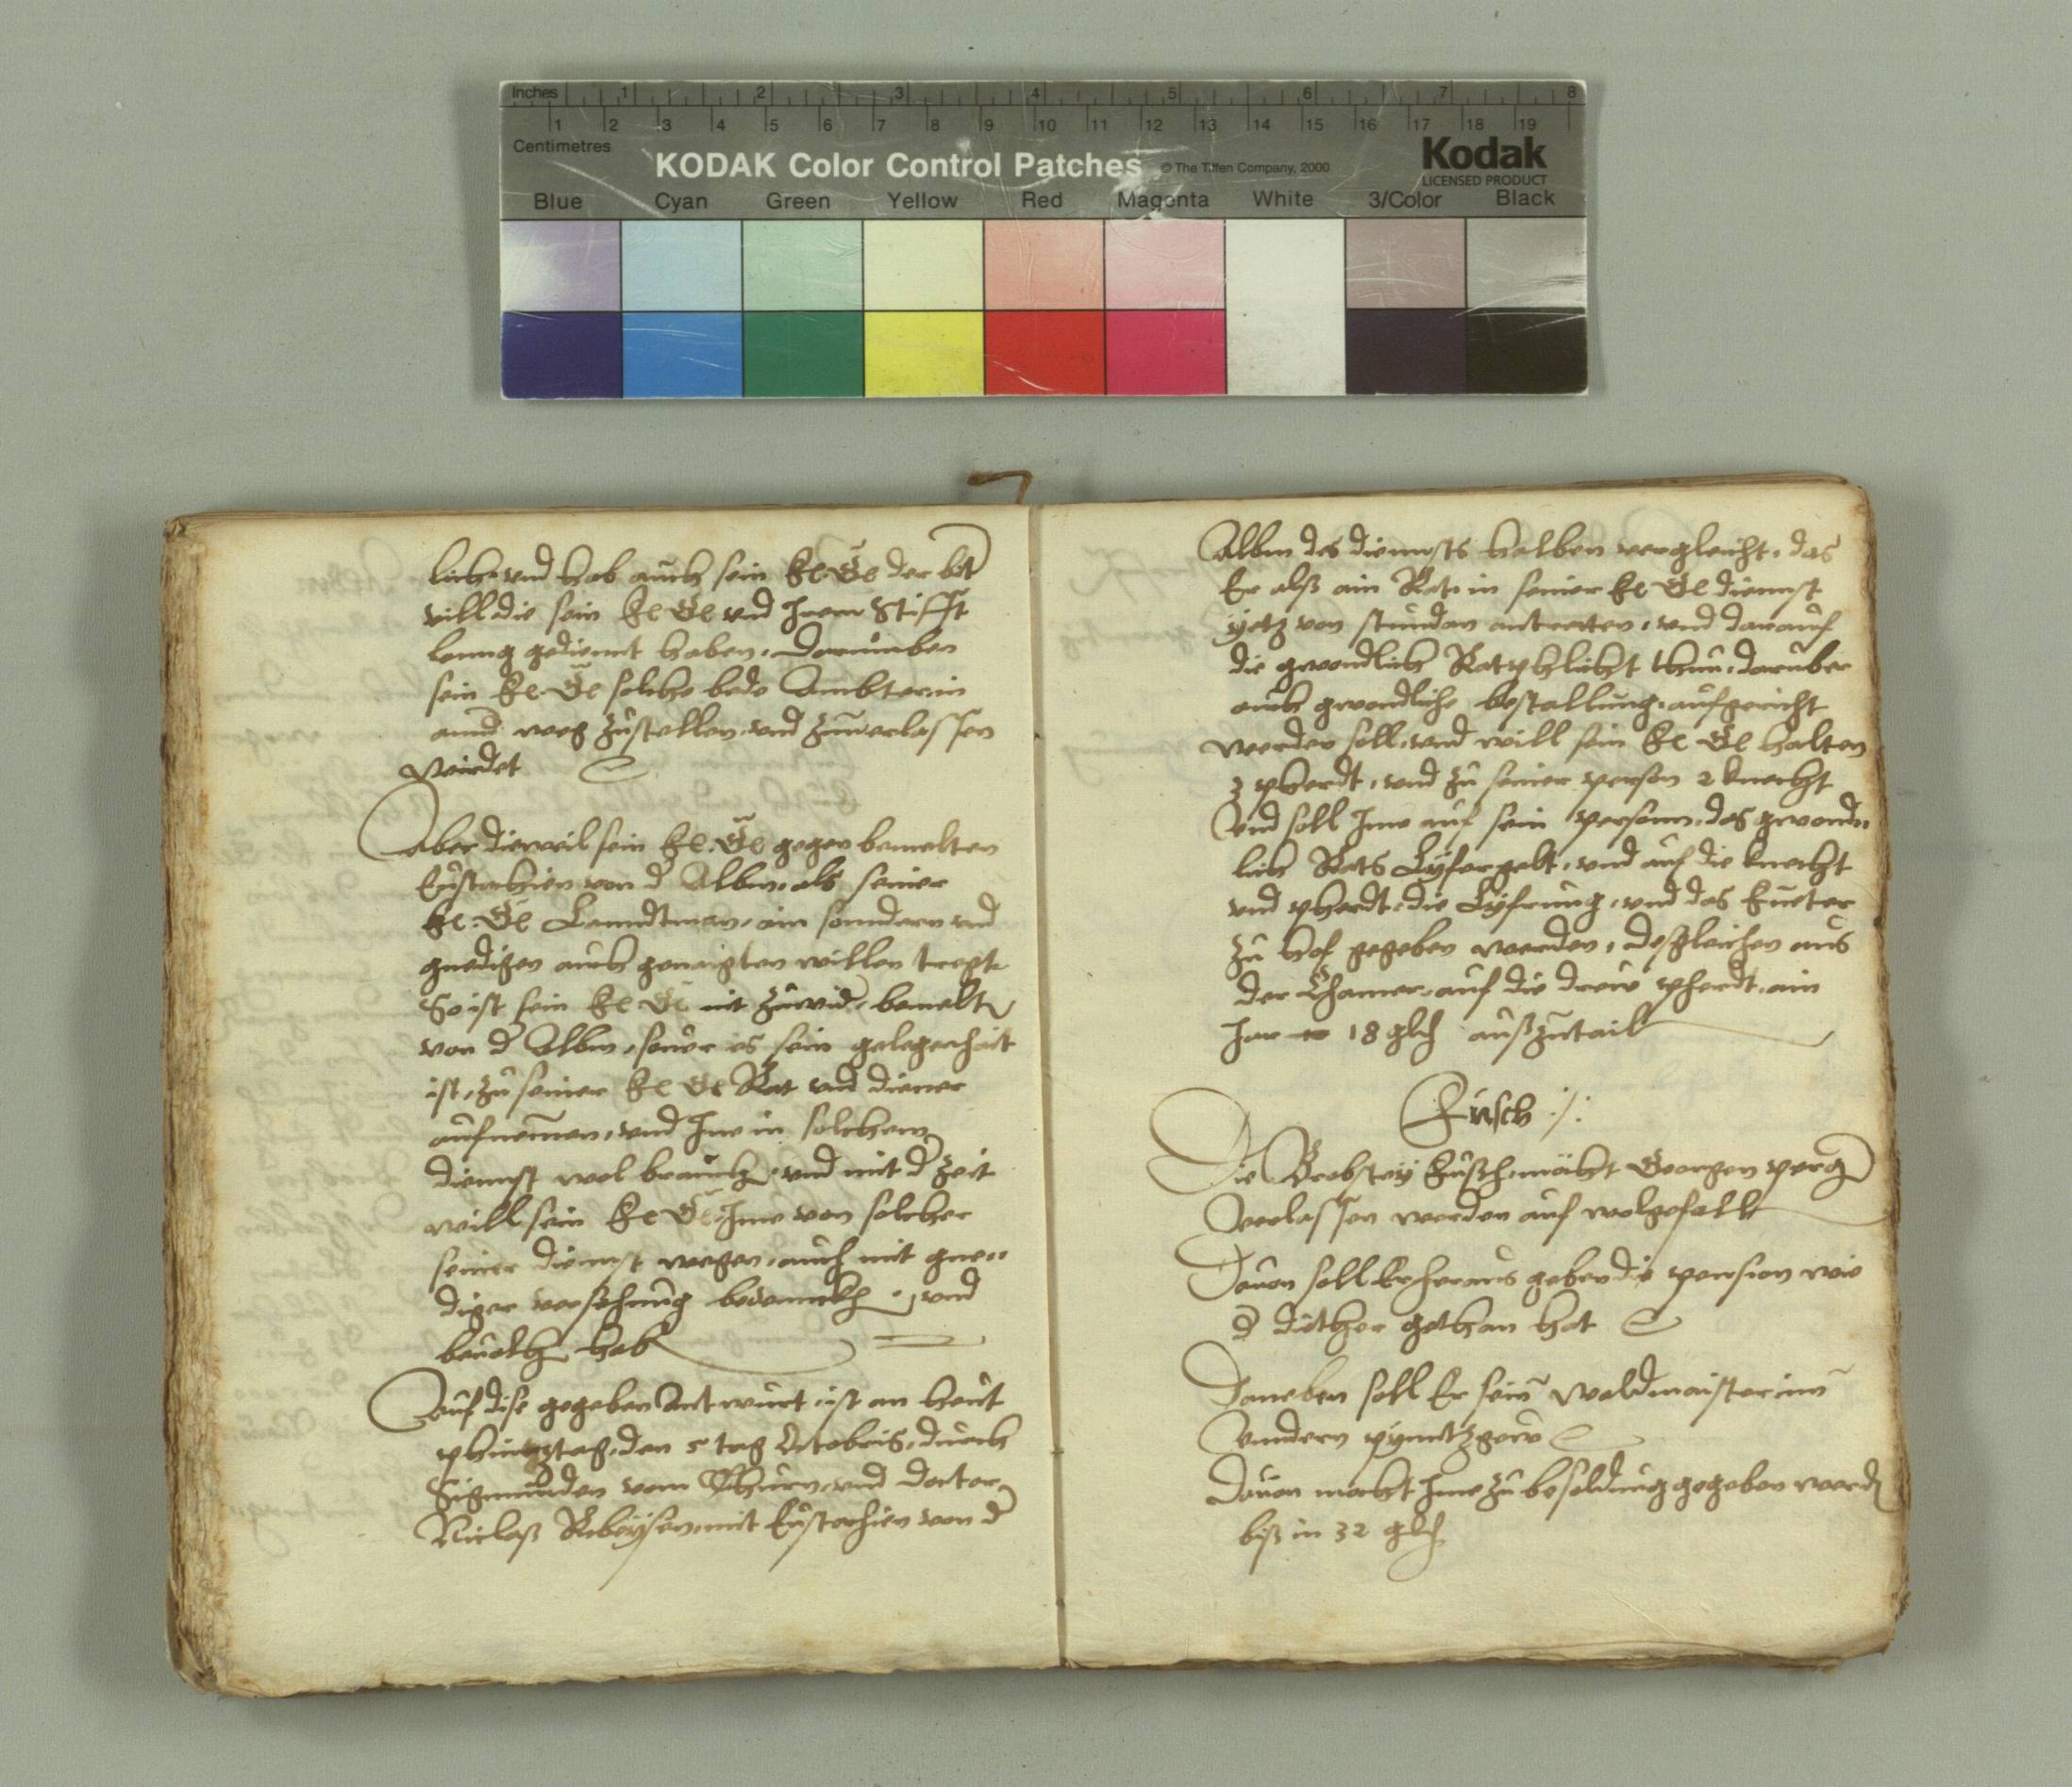 Inches 1 2 3 4 5 6 7 8
1 2 3 4 5 6 7 8 9 10 11 12 13 14 15 16 17 18 19
Centimetres
KODAK Color Control Patches © The Tiffen Company, 2000 Kodak
LICENSED PRODUCT
Blue Cyan Green Yellow Red Magenta White 3/Color Black
lich. und hab auch sein fe. Ge der
vill die sein fe Ge und Irem Stifft
lanng gediennt haben. Darumben
sein fe. Ge solche bede Ambter in
annd weg zustellen und zuuerlassen
wirdet
Aber dieweil sein fe. Ge gegen bemelten
Eustachien von d Albm, als seiner
fe. Ge Lanndtman, ain sonndern und
gnedigen auch genaigten willen tregt
So ist sein fe Ge nit zuwid, bemelt
von d Albm, souer es sein gelegenhait
ist, zu seiner fe Ge Rat und diener
aufnemen, und Ime in solchem
diennst wol brauch, und mit d Zeit
will sein fe Ge Ime von solcher
seiner diennst wegen, auch mit gne
diger versehung bedennckh, und
beuolh hab
Auf dise gegeben Antwurt, ist an heut
phintztag, den 5 tag Octobris, durch
Sigmunden vom Thurn, und doctor
Niclaß Ribeysen, mit Eustachien von d
Albm des diennsts halben vergleicht, das
Er alß ain Rat, in seiner fe Ge diennst
yetz von stundan antretten, und darauf
die gwondlich Ratphlicht thun, daruber
auch gwondliche bestallung aufgericht
werden soll, und will sein fe Ge halten
3 pherdt, und zu seiner person 2 knecht
Und soll Ime auf sein person, das gwond
lich Rats Lyfergelt, und auf die knecht
und pherdt, die Lyfrung, und das fueter
zu hof gegeben werden, desgleichen aus
der Chamer, auf die drew pherdt, ain
Jar 18 glh außzutail
Fusch
Die Brobstey Fusch, mächt Georgen perg
verlassen werden auf wolgefall
Dauon soll Er heraus geben die pension wie
d gethan hat
Daneben soll Er sein Waldmaister im
undern pynntzgew
Dauon mächt Ime zu besoldung gegeben werd
biß in 32 glh